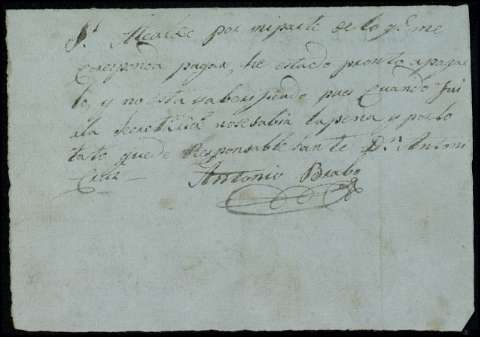 S.r Alcalde por mi parte de lo q.e me
corresponda pagar, he estado pronto a pagar
lo, y no está saber pues cuando fui
a la no se sabia la pena y por lo
tato quede Responsable Sante D.n Antoni

Antonio Brabo